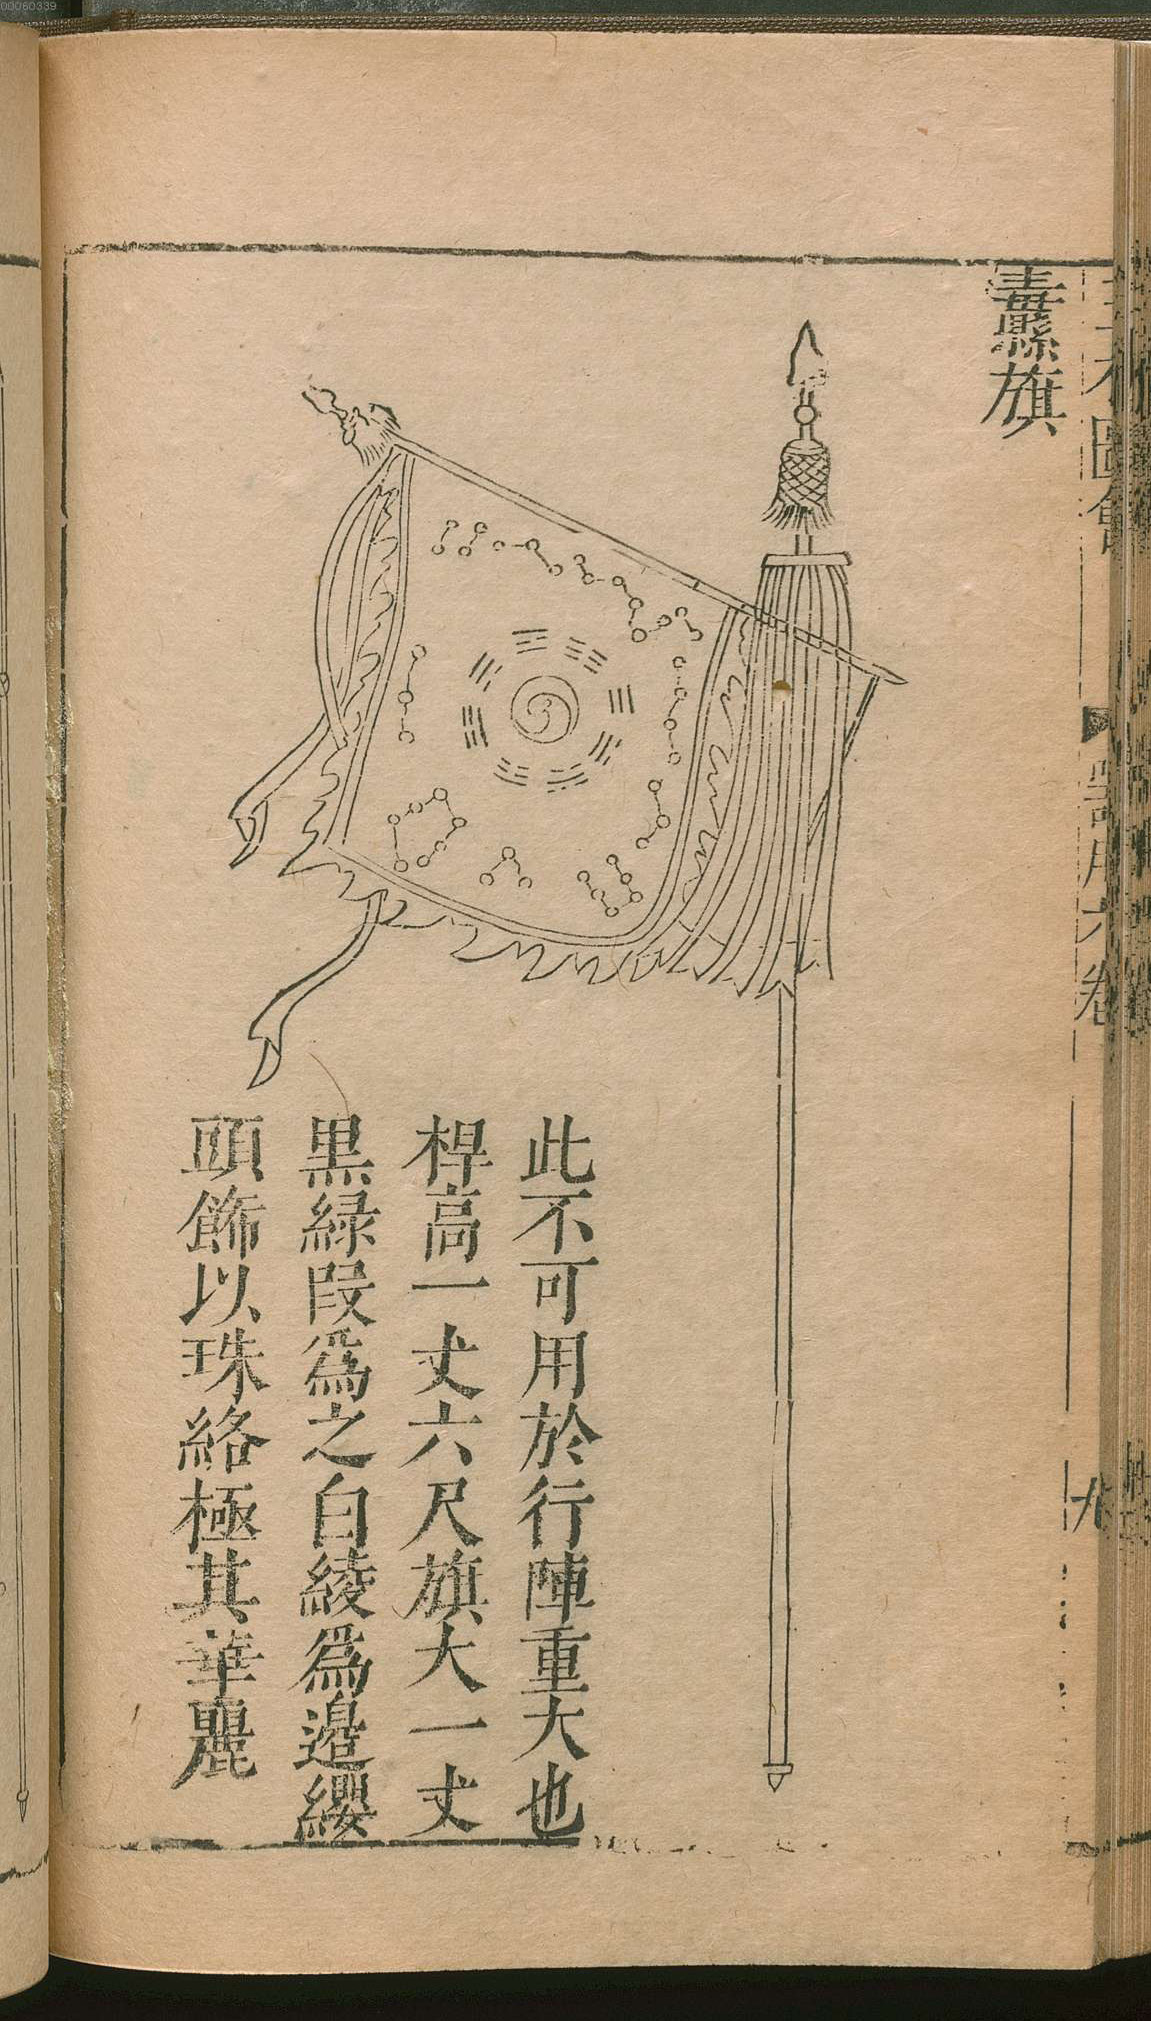 00060339
纛旗
此不可用於行陣重大也
桿高一丈六尺旗大一丈
黒緑段爲之白綾爲邉纓
頭飾以珠絡極其華麗